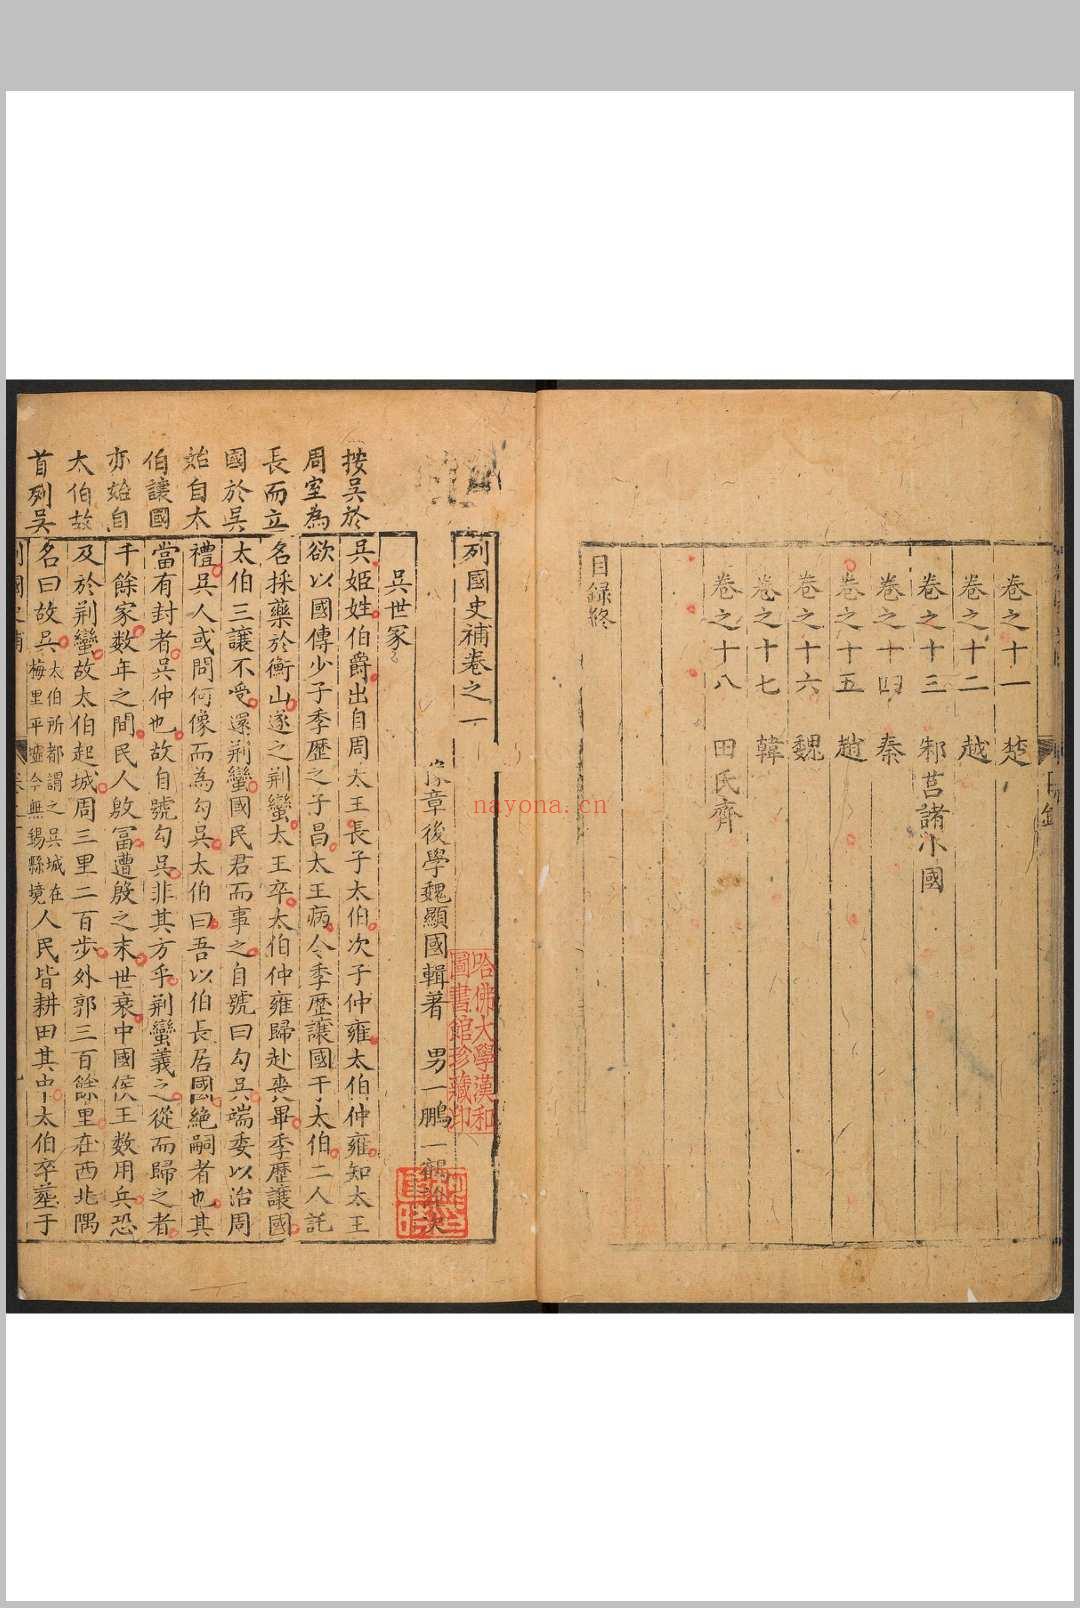 卷之十一 楚
卷之十二 越
卷之十三 邾莒諸小國
卷之十四 秦
卷之十五 趙
卷之十六 魏
卷之十七 韓
卷之十八 田氏齊
目録終
列國史補卷之一
章後學魏顯國輯著 男一鵬一鶴
吳世冢
按吳於
周室為
長而立
國於吳
始自太
伯讓國
亦始自
太伯故
首列吳
吳姬姓伯爵出自周太王長子太伯次子仲雍太伯仲雍知太王
欲以國傳少子季歷之子昌太王病令季歷讓國于太伯二人託
名採藥於衡山遂之荆蠻太王卒太伯仲雍歸赴喪畢季歷讓國
太伯三讓不受還荆蠻國民君而事之自號曰勾吳端委以治周
禮吳人或問何像而為勾吳太伯曰吾以伯長居國絶嗣者也其
當有封者吳仲也故自號勾吳非其方乎荆蠻義之從而歸之者
千餘家数年之間民人殷富遭殷之末世衰中國侯王数用兵恐
及於荆蠻故太伯起城周三里二百步外郭三百餘里在西北隅
名曰故吳太伯所都謂之吳城在梅里平墟今無錫縣境人民皆耕田其中太伯卒葬于
哈佛大學漢和
圖書館珍藏印
nayona.cn